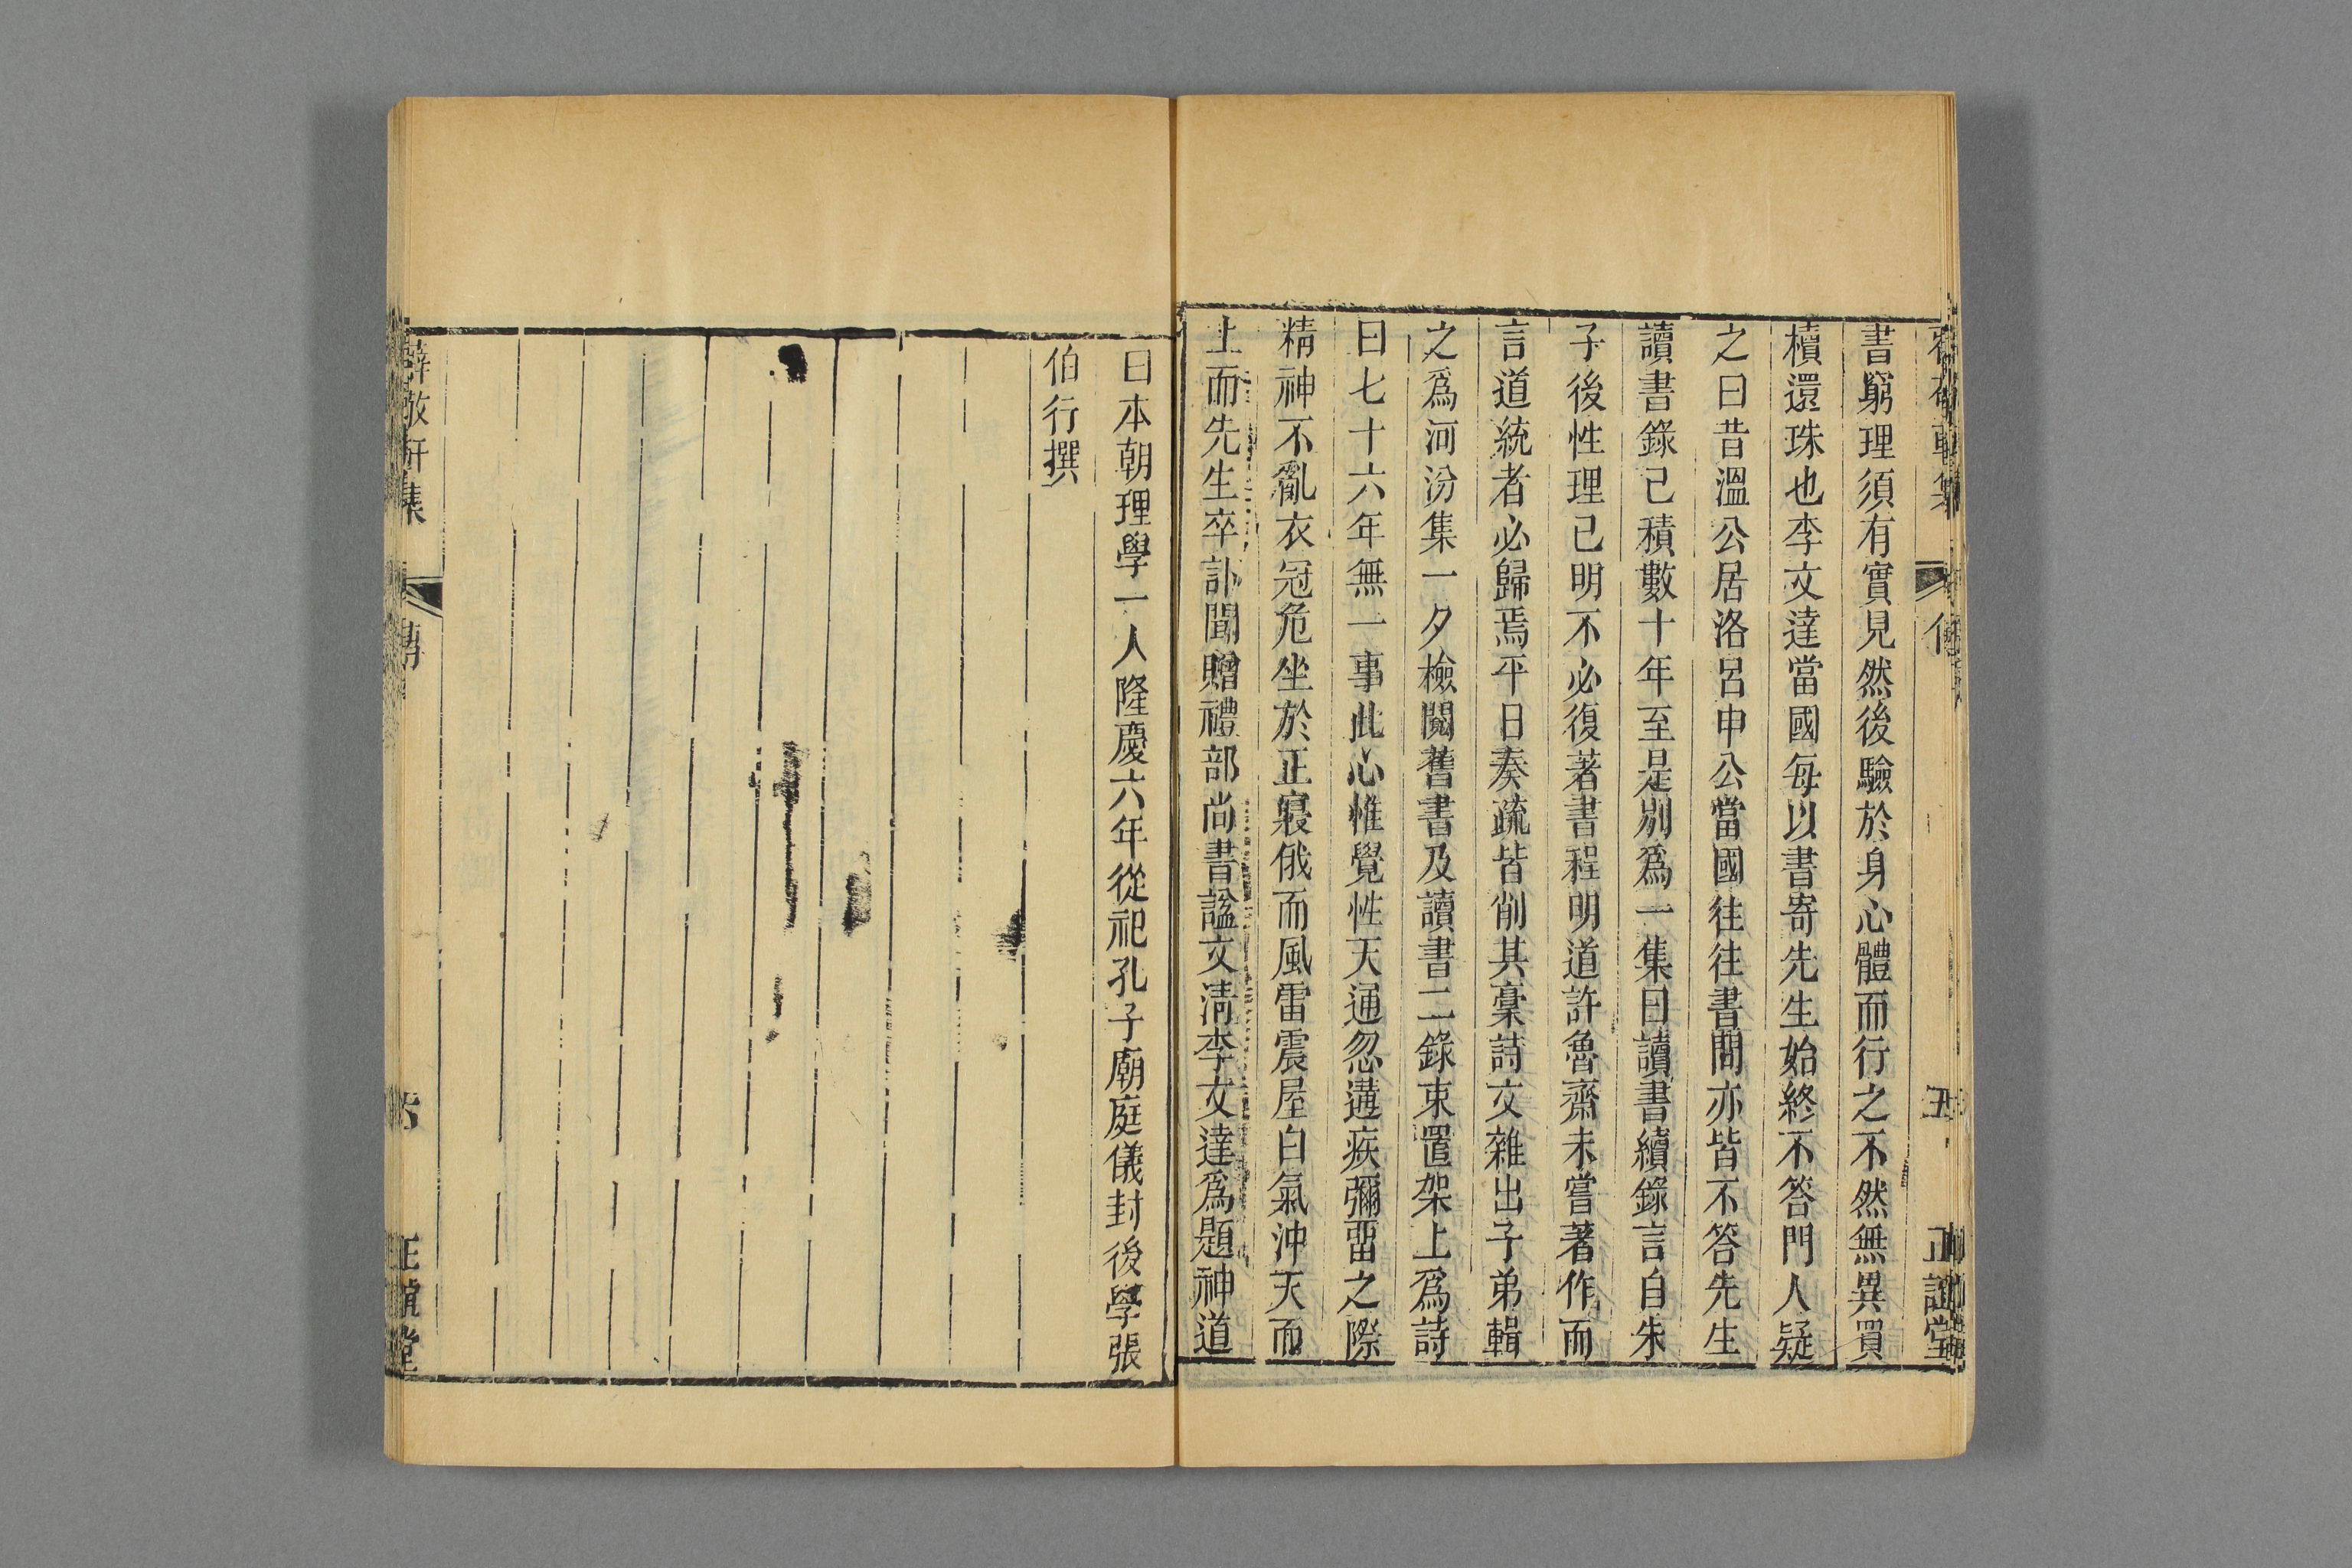 書窮理須有實見然後驗於身心體而行之不然無異買
櫝還珠也李文達當國每以書寄先生始終不答門人疑
之曰昔溫公居洛呂申公當國往往書問亦皆不答先生
讀書錄已積數十年至是別爲一集曰讀書續錄言自朱
子後性理已明不必復著書程明道許魯齋未嘗著作而
言道統者必歸焉平日奏疏皆削其稾詩文雜出子弟輯
之爲河汾集一夕檢閱舊書及讀書二錄束置架上爲詩
曰七十六年無一事此心惟覺性天通忽遘疾彌畱之際
精神不亂衣冠危坐於正寢俄而風雷震屋白氣沖天而
上而先生卒訃聞贈禮部尚書諡文淸李文達爲題神道
曰本朝理學一人隆慶六年從祀孔子廟庭儀封後學張
伯行撰
薛敬軒集
傳
六
正誼堂